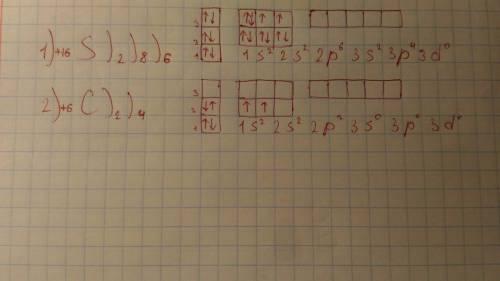 1) +16 S )2 )8 )6
3 ↑↓ ↑↓ ↑ ↑
2 ↑↓ ↑↓ ↑↓ ↑↓
1 ↑↓ 1s² 2s² 2p⁶ 3s² 3p⁴ 3d⁰
2) +6 C )2 )4
3
2 ↓↑ ↑ ↑
1 ↑↓ 1s² 2s² 2p² 3s⁰ 3p⁰ 3d⁰